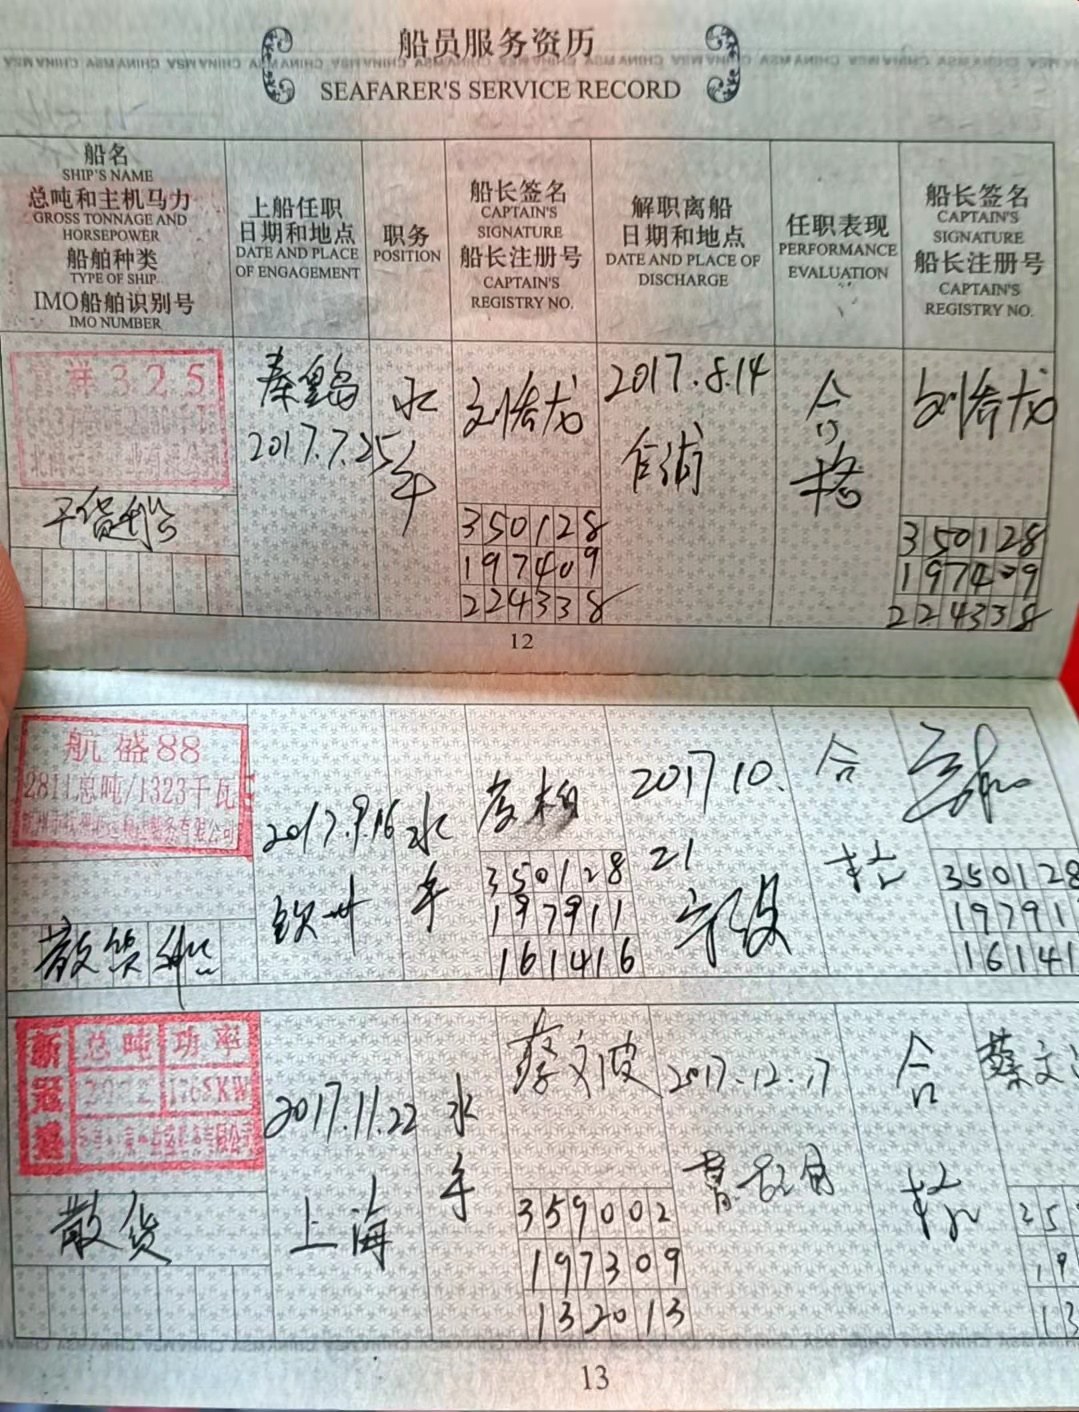 船员服务资历
SEAFARER'S SERVICE RECORD
船名
SHIP'S NAME
总吨和主机马力
GROSS TONNAGE AND
HORSEPOWER
船舶种类
TYPE OF SHIP
IMO船舶识别号
IMO NUMBER
上船任职
日期和地点
DATE AND PLACE
OF ENGAGEMENT
职务
POSITION
船长签名
CAPTAIN'S
SIGNATURE
船长注册号
CAPTAIN'S
REGISTRY NO.
解职离船
日期和地点
DATE AND PLACE OF
DISCHARGE
任职表现
PERFORMANCE
EVALUATION
船长签名
CAPTAIN'S
SIGNATURE
船长注册号
CAPTAIN'S
REGISTRY NO.
祥325
干货船
秦皇岛
2017.7.25
水
手
350128
197409
224338
2017.8.14
合
格
350128
197409
224338
12
航盛88
总吨/1323千瓦
散货船
2017.9.16
钦州
水
手
350128
197911
161416
2017.10.
21
合
格
350128
19791
16141
新冠
总吨 功率
散货
2017.11.22
上海
水
手
蔡文波
359002
197309
132013
2017.12.17
合
格
蔡文
13